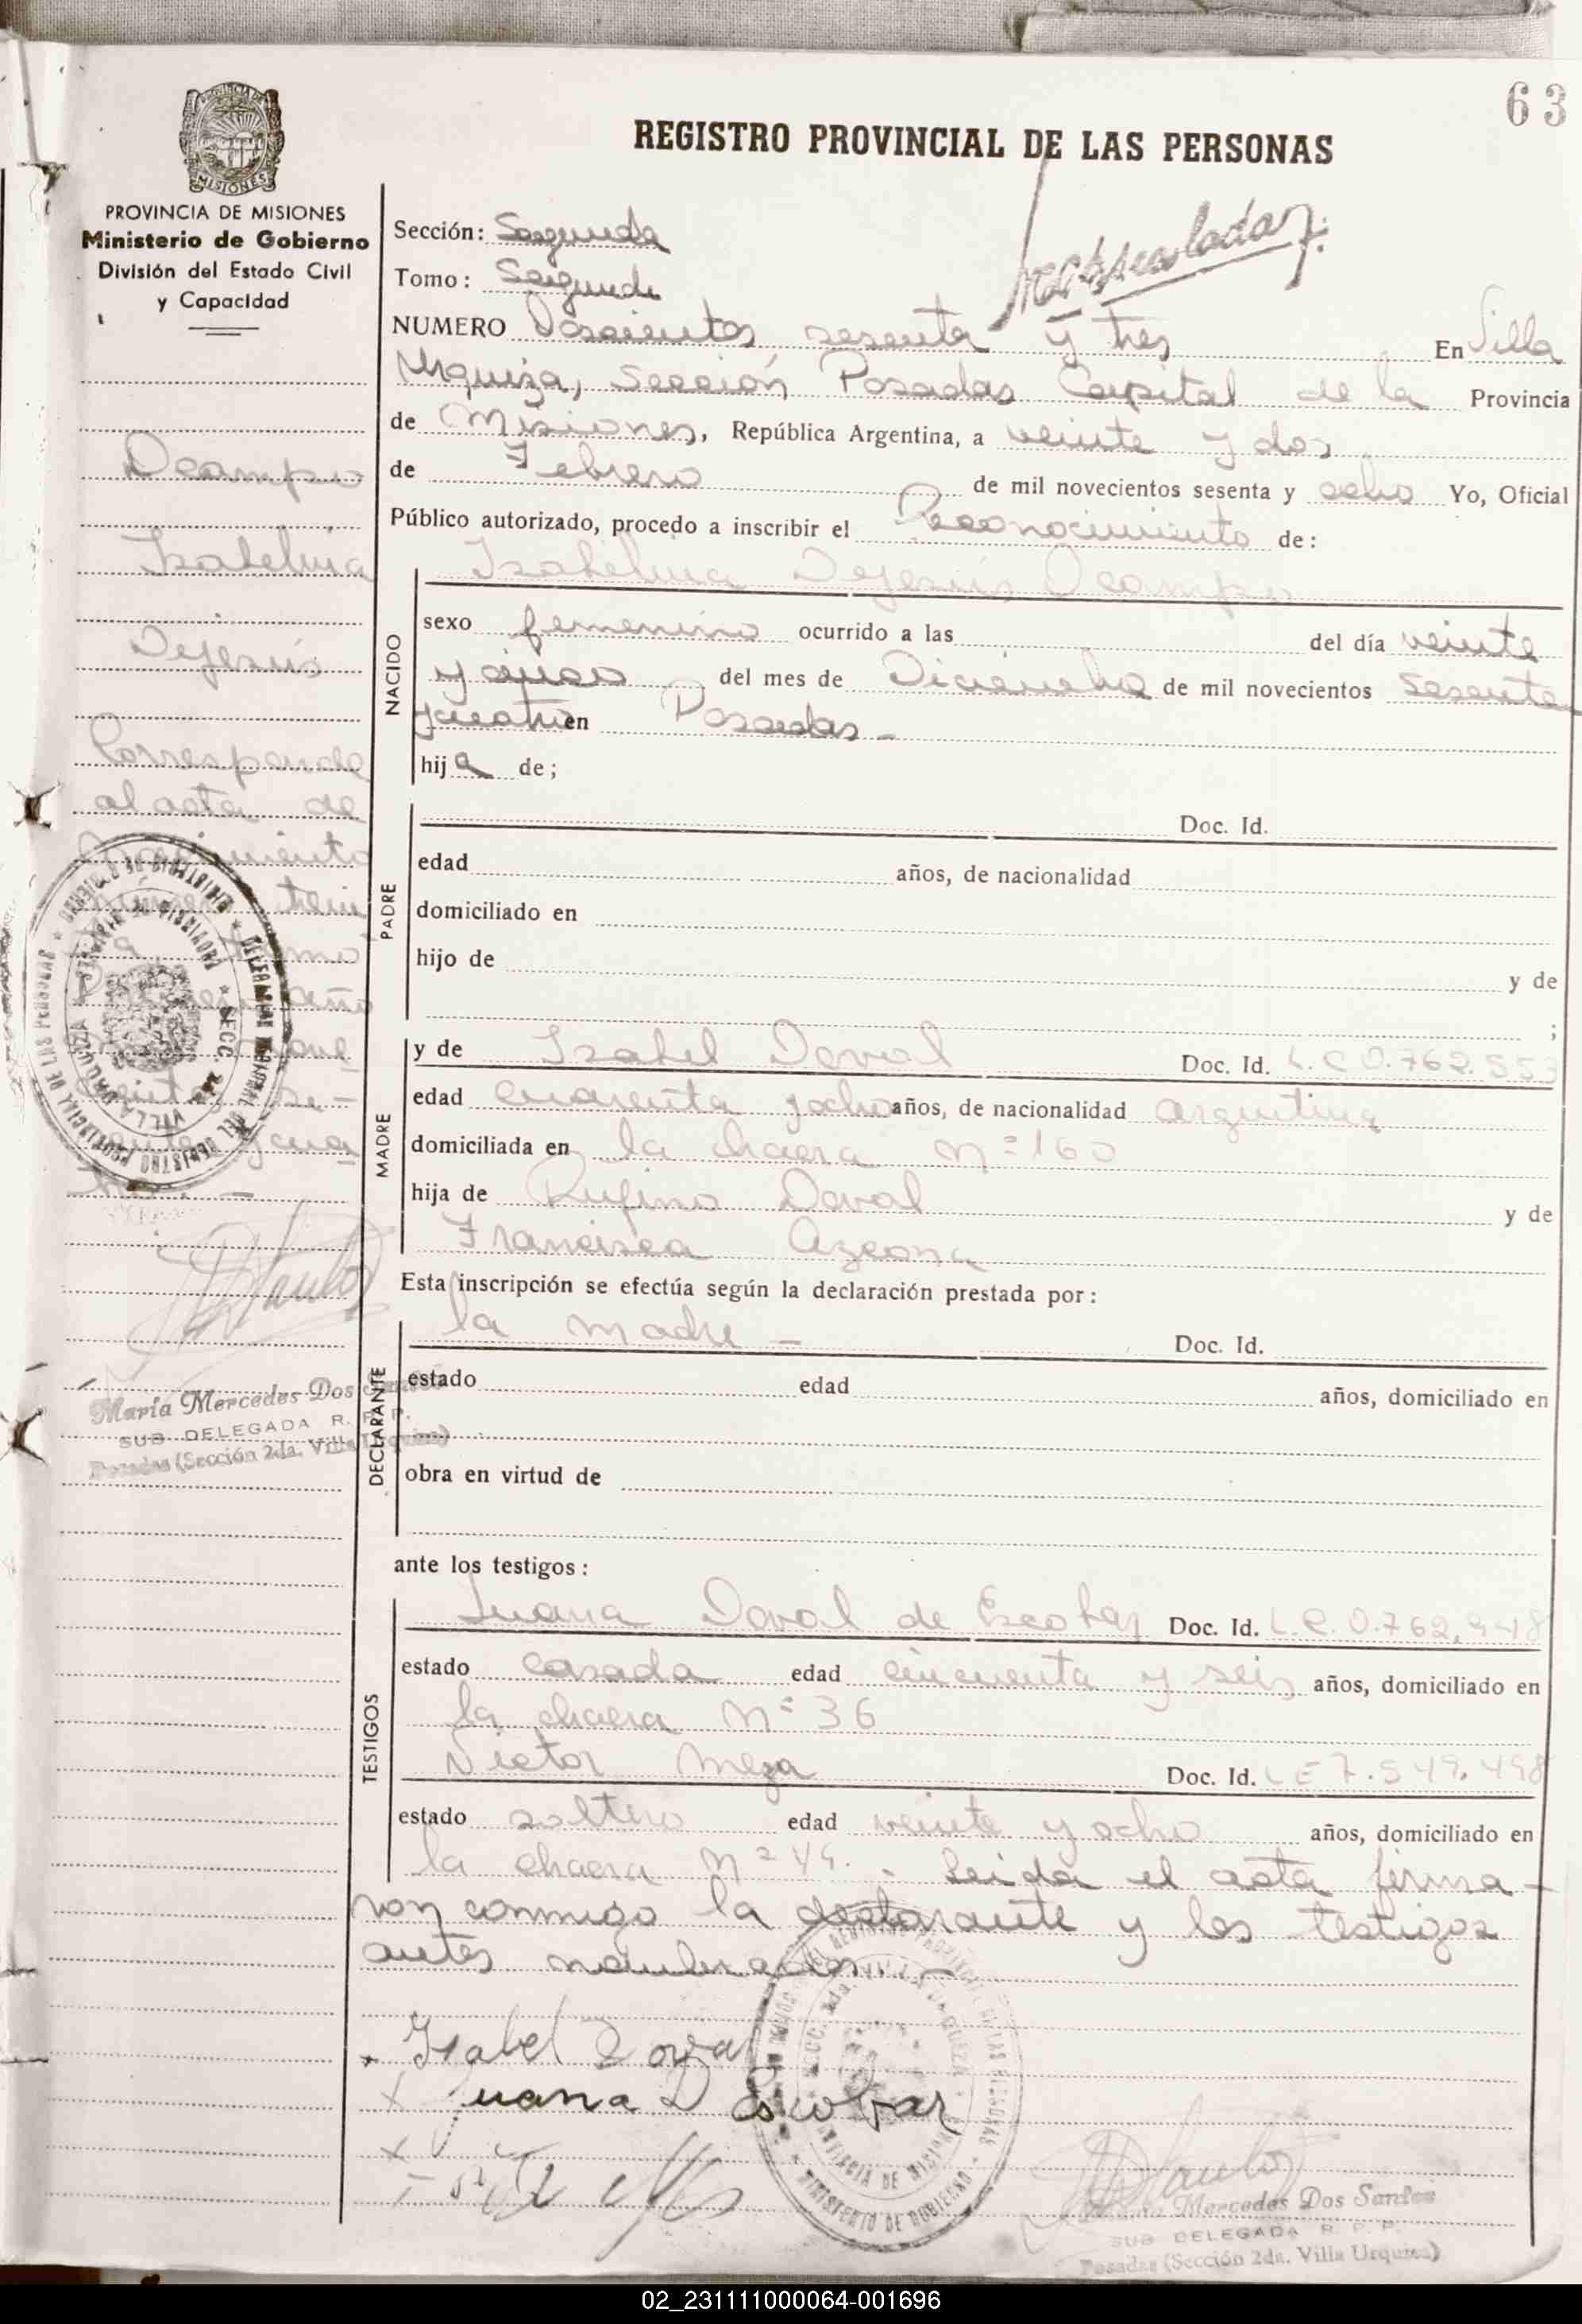 63
REGISTRO PROVINCIAL DE LAS PERSONAS
PROVINCIA DE MISIONES
Ministerio de Gobierno
División del Estado Civil
y Capacidad
Sección: Segunda
Tomo: Segundo
NUMERO Doscientos sesenta y tres En Villa
Urquiza, Sección Posadas Capital de la Provincia
de Misiones, República Argentina, a veinte y dos
de Febrero de mil novecientos sesenta y ocho Yo, Oficial
Público autorizado, procedo a inscribir el Reconocimiento de:
Ocampo
Isabelina
Dejesús
Corresponde
al acta de
Nacimiento
número trein
ta tomo
año
se-
y cua
tro. -
María Mercedes Dos Santos
SUB DELEGADA R. P. P.
Posadas (Sección 2da. Villa Urquiza)
NACIDO
Isabelina Dejesús Ocampo
sexo femenino ocurrido a las del día veinte
y cinco del mes de Diciembre de mil novecientos sesenta
y cuatro en Posadas -
hija de;
PADRE
Doc. Id.
edad años, de nacionalidad
domiciliado en
hijo de y de
;
MADRE
y de Isabel Doval Doc. Id. L.C 0.762.553
edad cuarenta y ocho años, de nacionalidad argentina
domiciliada en la chacra n=160
hija de Rufino Doval y de
Francisca Azcona
Esta inscripción se efectúa según la declaración prestada por:
DECLARANTE
la madre - Doc. Id.
estado edad años, domiciliado en
obra en virtud de
ante los testigos:
TESTIGOS
Juana Doval de Escobar Doc. Id. L.C. 0.762.948
estado casada edad cincuenta y seis años, domiciliado en
la chacra N= 36
Victor Meza Doc. Id. LE 7.549.498
estado soltero edad veinte y ocho años, domiciliado en
la chacra N= 49. - Leida el acta firma-
ron conmigo la declarante y los testigos
antes nombrados. -
Isabel Doval
Juana D Escobar
María Mercedes Dos Santos
SUB DELEGADA R. P. P.
Posadas (Sección 2da. Villa Urquiza)
02_231111000064-001696